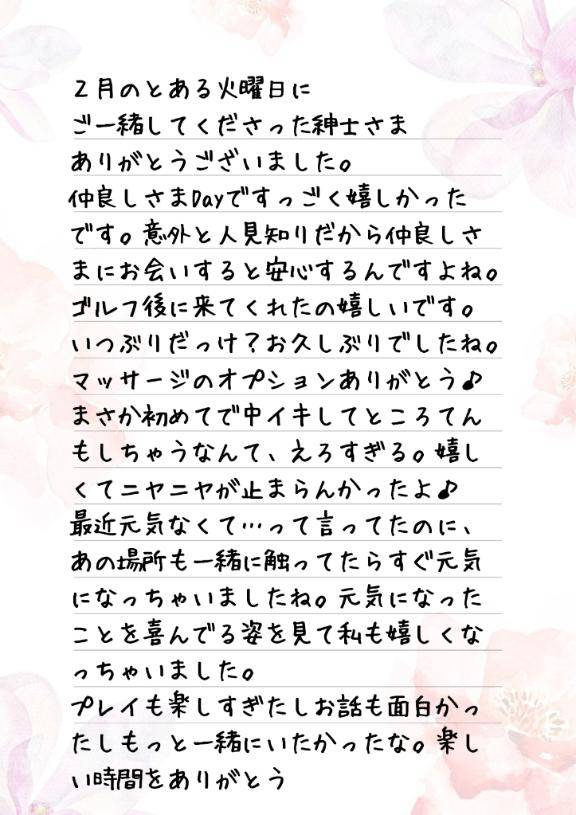 2月のとある火曜日に
ご一緒してくださった紳士さま
ありがとうございました。
仲良しさまDayですっごく嬉しかった
です。意外と人見知りだから仲良しさ
まにお会いすると安心するんですよね。
ゴルフ後に来てくれたの嬉しいです。
いつぶりだっけ？お久しぶりでしたね。
マッサージのオプションありがとう♪
まさか初めてで中イキしてところてん
もしちゃうなんて、えろすぎる。嬉し
くてニヤニヤが止まらんかったよ♪
最近元気なくて…って言ってたのに、
あの場所も一緒に触ってたらすぐ元気
になっちゃいましたね。元気になった
ことを喜んでる姿を見て私も嬉しくな
っちゃいました。
プレイも楽しすぎたしお話も面白かっ
たしもっと一緒にいたかったな。楽し
い時間をありがとう